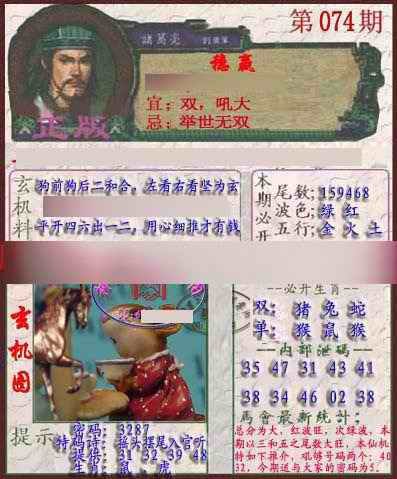 第074期
諸葛亮
稳赢
宜：双，吼大
忌：举世无双
正版
玄机料
狗前狗后二和合，左看右看坚为玄
平开四六出一二，用心细推才有戟
本期必开
尾数：159468
波色：绿 红
五行：金 火 土
必开生肖
双：猪 兔 蛇
单：猴 鼠 猴
内部泄码
35 47 31 43 41
38 34 46 02 38
馬會最新統計：
总分为大，红波旺，次绿波，本
期以三和五之尾数大旺，本仙机
特如下推介，吼够号码两个：40
32，今期送与大家的密码为5．
玄机图
提示
密码：3287
特码诗：摇头摆尾入官听
提倍：31 32 39 48
生肖：鼠 、虎